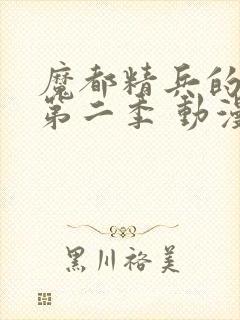 魔都精兵的
第二季 動漫
黑川裕美